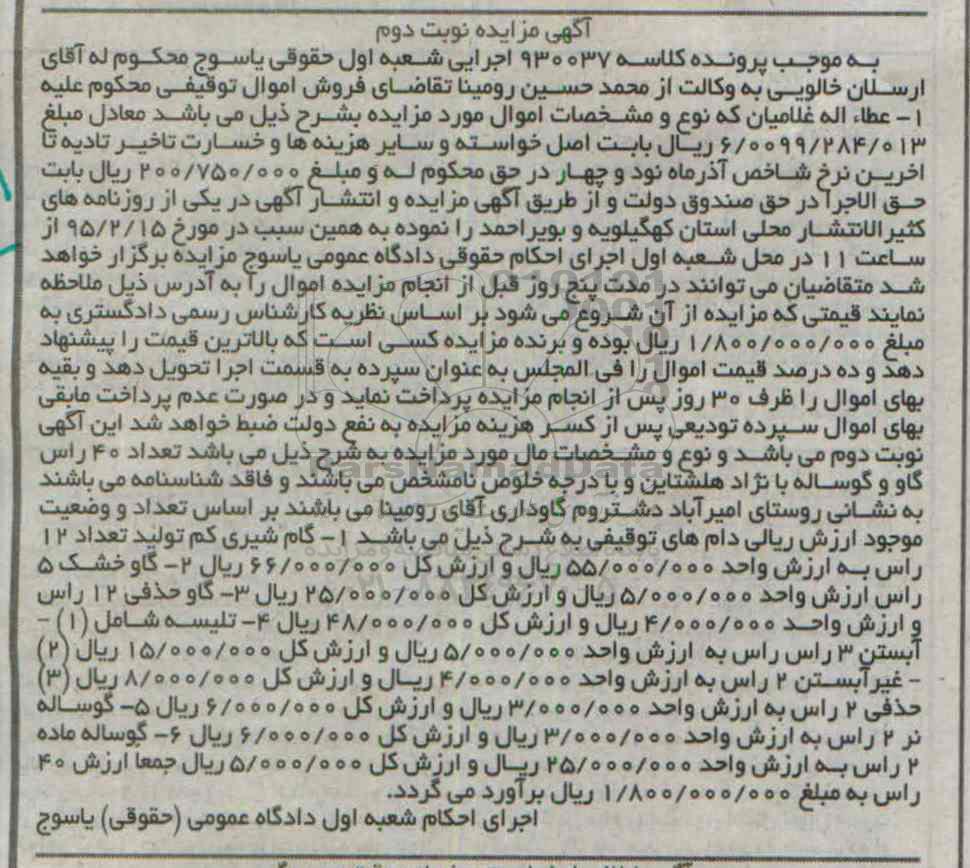 آگهی مزایده نوبت دوم
به موجب پرونده کلاسه ۹۳۰۰۳۷ اجرایی شعبه اول حقوقی یاسوج محکوم له آقای
ارسلان خالویی به وکالت از محمد حسین رومینا تقاضای فروش اموال توقیفی محکوم علیه
۱- عطاء اله غلامیان که نوع و مشخصات اموال مورد مزایده بشرح ذیل می باشد معادل مبلغ
۶/۰۰۹۹/۲۸۴/۰۱۳ ریال بابت اصل خواسته و سایر هزینه ها و خسارت تاخیر تادیه تا
اخرین نرخ شاخص آذرماه نود و چهار در حق محکوم له و مبلغ ۲۰۰/۷۵۰/۰۰۰ ریال بابت
حق الاجرا در حق صندوق دولت و از طریق آگهی مزایده و انتشار آگهی در یکی از روزنامه های
کثیرالانتشار محلی استان کهگیلویه و بویراحمد را نموده به همین سبب در مورخ ۹۵/۲/۱۵ از
ساعت ۱۱ در محل شعبه اول اجرای احکام حقوقی دادگاه عمومی یاسوج مزایده برگزار خواهد
شد متقاضیان می توانند در مدت پنج روز قبل از انجام مزایده اموال را به آدرس ذیل ملاحظه
نمایند قیمتی که مزایده از آن شروع می شود بر اساس نظریه کارشناس رسمی دادگستری به
مبلغ ۱/۸۰۰/۰۰۰/۰۰۰ ریال بوده و برنده مزایده کسی است که بالاترین قیمت را پیشنهاد
دهد و ده درصد قیمت اموال را فی المجلس به عنوان سپرده به قسمت اجرا تحویل دهد و بقیه
بهای اموال را ظرف ۳۰ روز پس از انجام مزایده پرداخت نماید و در صورت عدم پرداخت مابقی
بهای اموال سپرده تودیعی پس از کسر هزینه مزایده به نفع دولت ضبط خواهد شد این آگهی
نوبت دوم می باشد و نوع و مشخصات مال مورد مزایده به شرح ذیل می باشد تعداد ۴۰ راس
گاو و گوساله با نژاد هلشتاین و با درجه خلوص نامشخص می باشند و فاقد شناسنامه می باشند
به نشانی روستای امیرآباد دشتروم گاوداری آقای رومینا می باشند بر اساس تعداد و وضعیت
موجود ارزش ریالی دام های توقیفی به شرح ذیل می باشد ۱- گام شیری کم تولید تعداد ۱۲
راس به ارزش واحد ۵۵/۰۰۰/۰۰۰ ریال و ارزش کل ۶۶/۰۰۰/۰۰۰ ریال ۲- گاو خشک ۵
راس ارزش واحد ۵/۰۰۰/۰۰۰ ریال و ارزش کل ۲۵/۰۰۰/۰۰۰ ریال ۳- گاو حذفی ۱۲ راس
و ارزش واحد ۴/۰۰۰/۰۰۰ ریال و ارزش کل ۴۸/۰۰۰/۰۰۰ ریال ۴- تلیسه شامل (۱) -
آبستن ۳ راس راس به ارزش واحد ۵/۰۰۰/۰۰۰ ریال و ارزش کل ۱۵/۰۰۰/۰۰۰ ریال (۲)
- غیرآبستن ۲ راس به ارزش واحد ۴/۰۰۰/۰۰۰ ریال و ارزش کل ۸/۰۰۰/۰۰۰ ریال (۳)
حذفی ۲ راس به ارزش واحد ۳/۰۰۰/۰۰۰ ریال و ارزش کل ۶/۰۰۰/۰۰۰ ریال ۵- گوساله
نر ۲ راس به ارزش واحد ۳/۰۰۰/۰۰۰ ریال و ارزش کل ۶/۰۰۰/۰۰۰ ریال ۶- گوساله ماده
۲ راس به ارزش واحد ۲۵/۰۰۰/۰۰۰ ریال و ارزش کل ۵/۰۰۰/۰۰۰ ریال جمعا ارزش ۴۰
راس به مبلغ ۱/۸۰۰/۰۰۰/۰۰۰ ریال برآورد می گردد.
اجرای احکام شعبه اول دادگاه عمومی (حقوقی) یاسوج
ParsNamadData